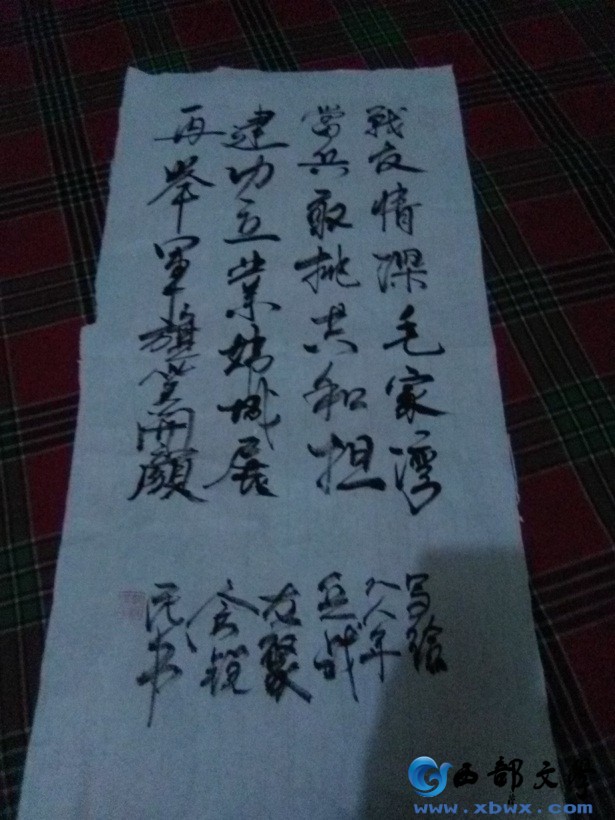 戰友情深毛家湾
当兵敢挑共和担
建功立业城展
再举军旗笑开颜
写给
八八年
兵战
友聚
会
书
西部文学
www.xbwx.com